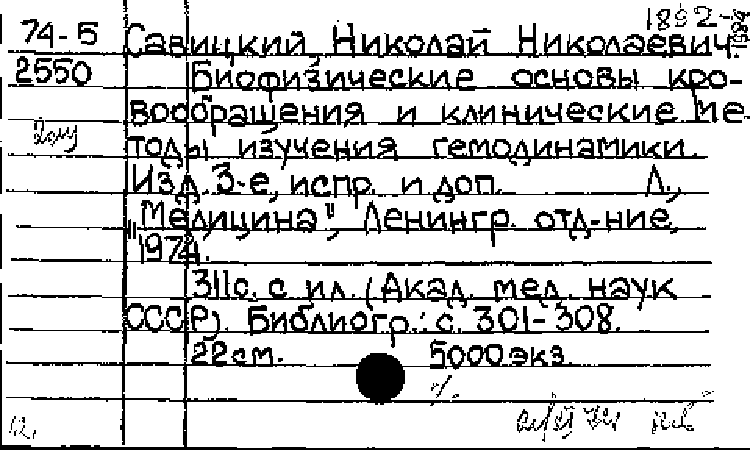 1892-
74-5 Савицкий, Николай Николаевич.
2550 Биофизические основы кро-
вообращения и клинические ме-
тоды изучения гемодинамики.
Изд. 3-е, испр. и доп. Л.,
"Медицина", Ленингр. отд-ние,
1974.
311с. с ил. (Акад. мед. наук
СССР). Библиогр.: с. 301-308.
22см. 5000экз.